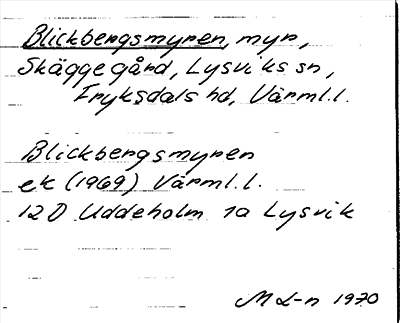 Blickbergsmyren, myr,
Skäggegård, Lysviks sn,
Fryksdals hd, Värml.l.
Blickbergsmyren
ek (1969) Värml.l.
12D Uddeholm 1a Lysvik
M L-n 1970